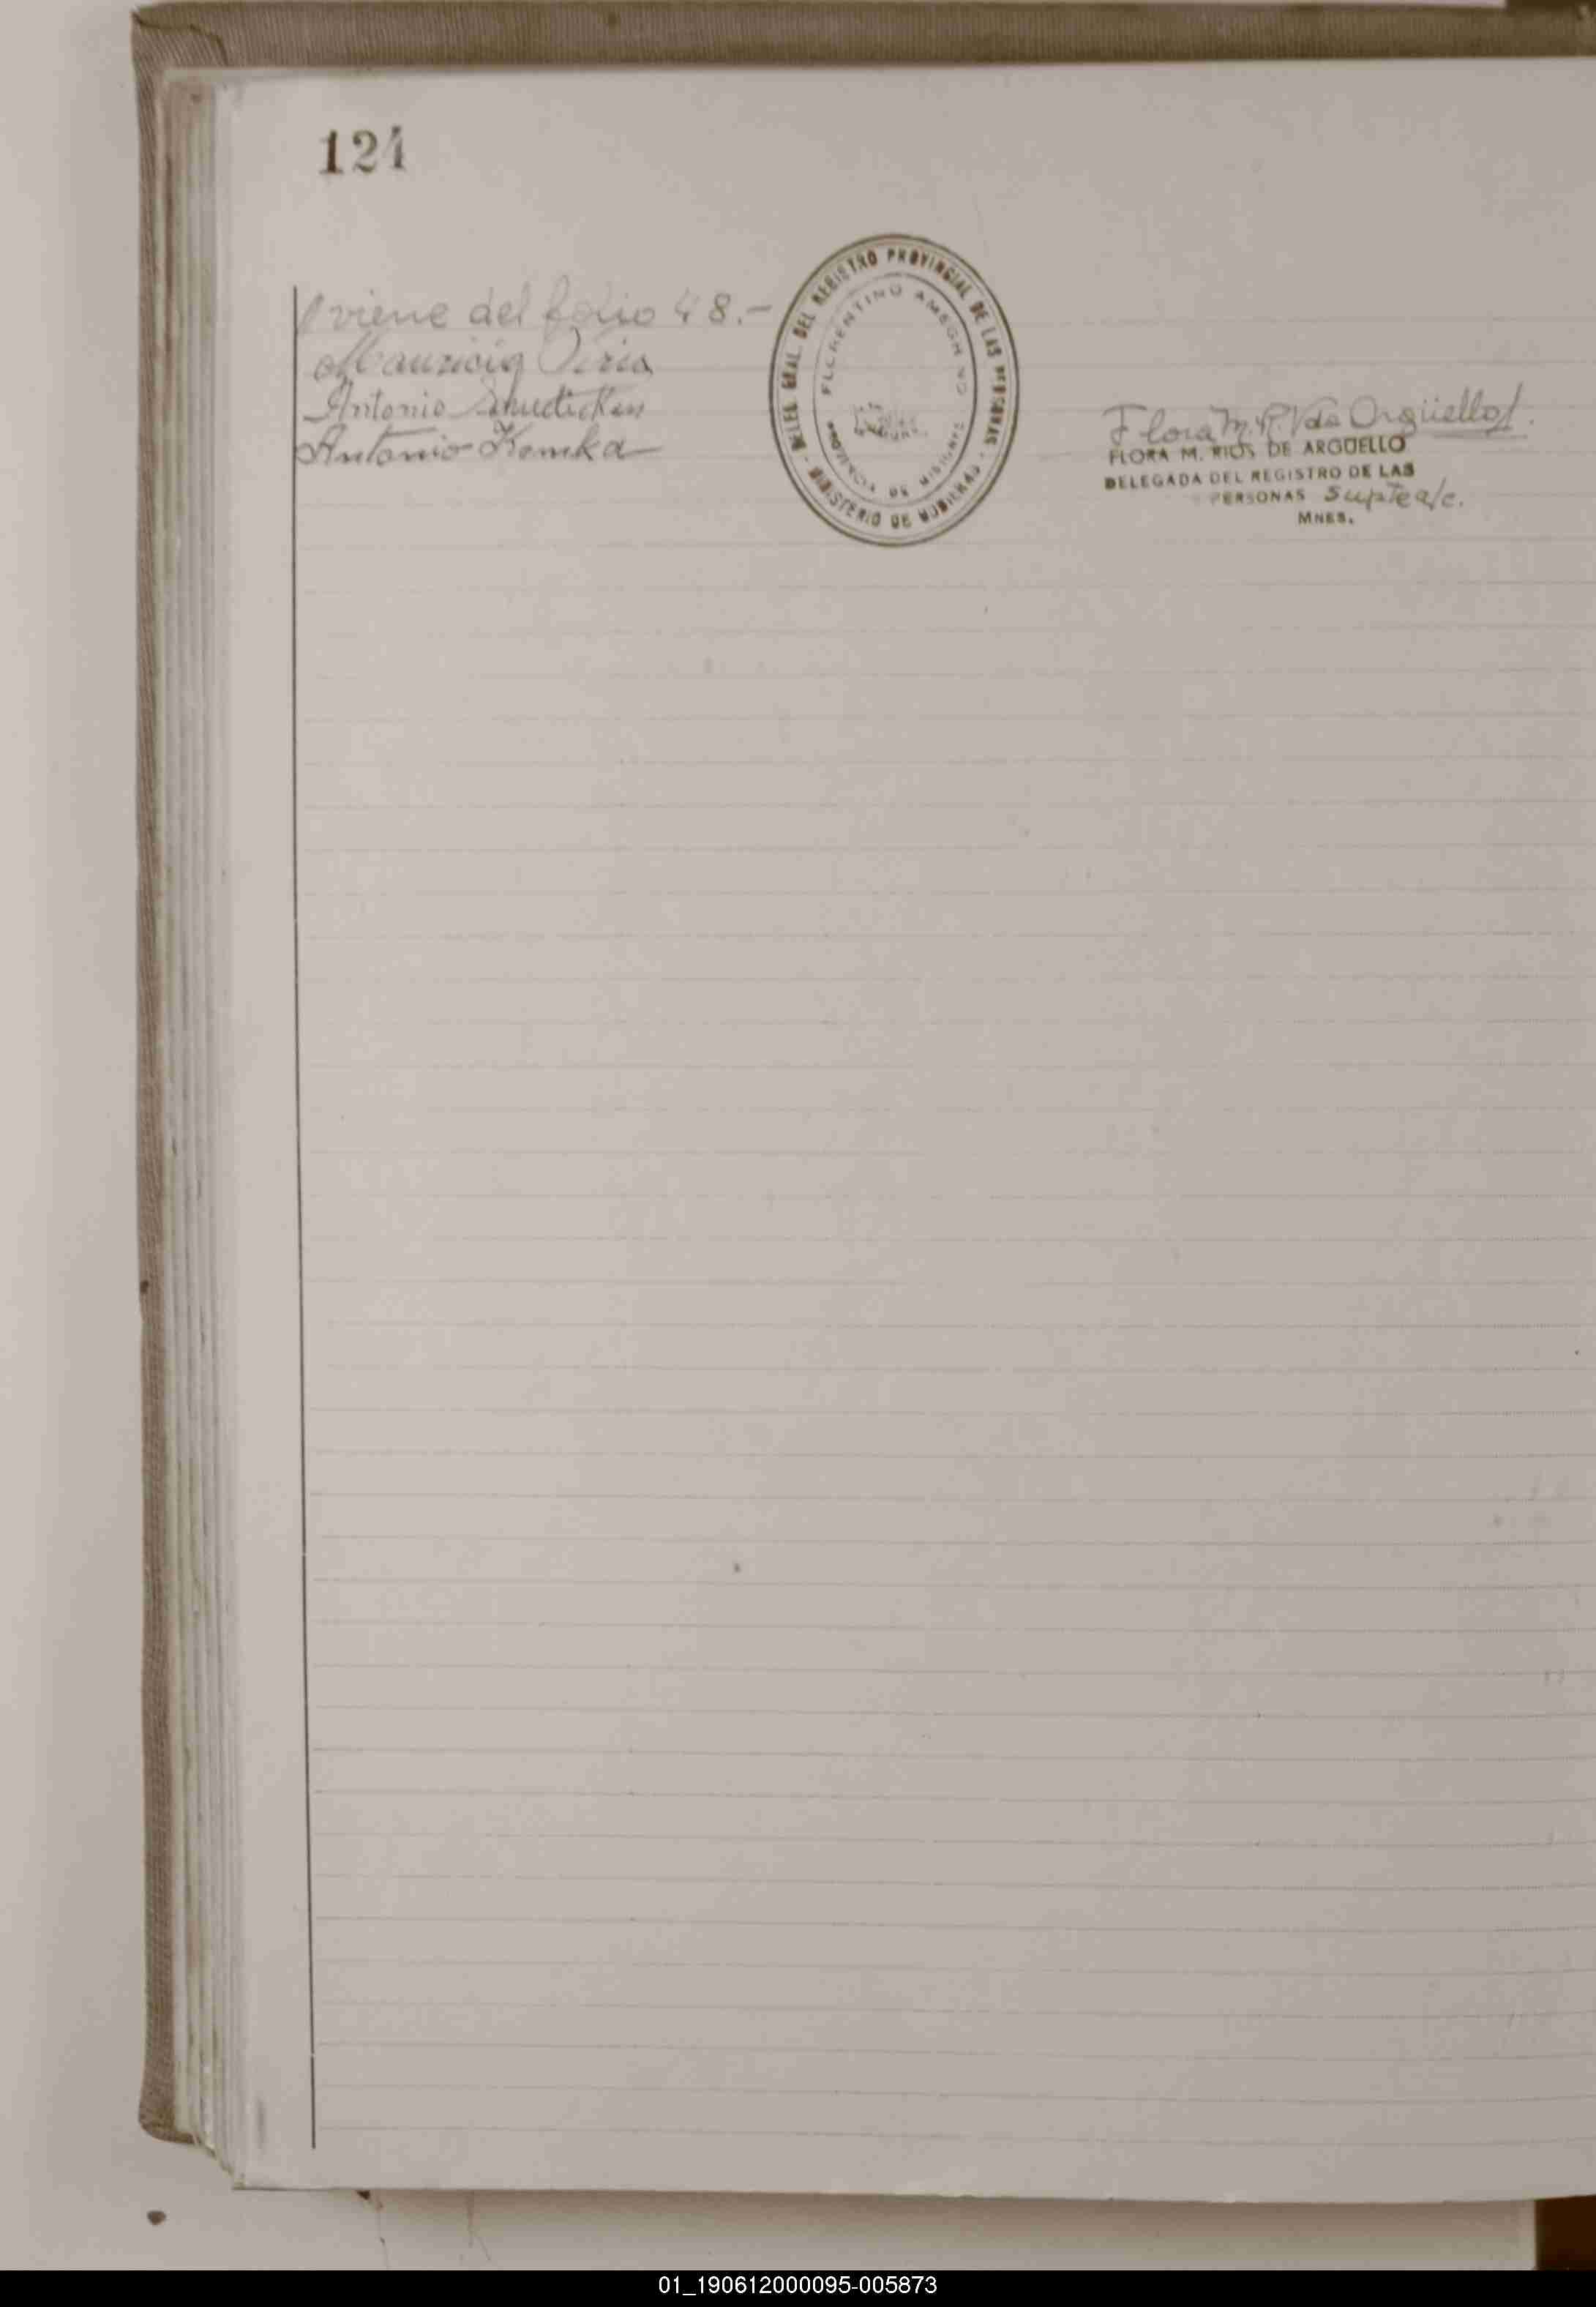 124
viene del folio 48.-
Mauricia
Antonio
Antonio Komka
DELEG. GRAL. DEL REGISTRO PROVINCIAL DE LAS PERSONAS
FLORENTINO AMEGHINO
PROVINCIA DE MISIONES
MINISTERIO DE GOBIERNO
Flora M. R. Vda Argüello
FLORA M. RIOS DE ARGÜELLO
DELEGADA DEL REGISTRO DE LAS
PERSONAS Supte a/c.
MNES.
01_190612000095-005873